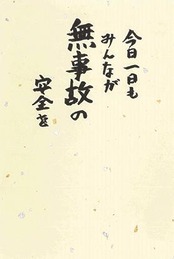 今日一日も
みんなが
無事故の
安全を